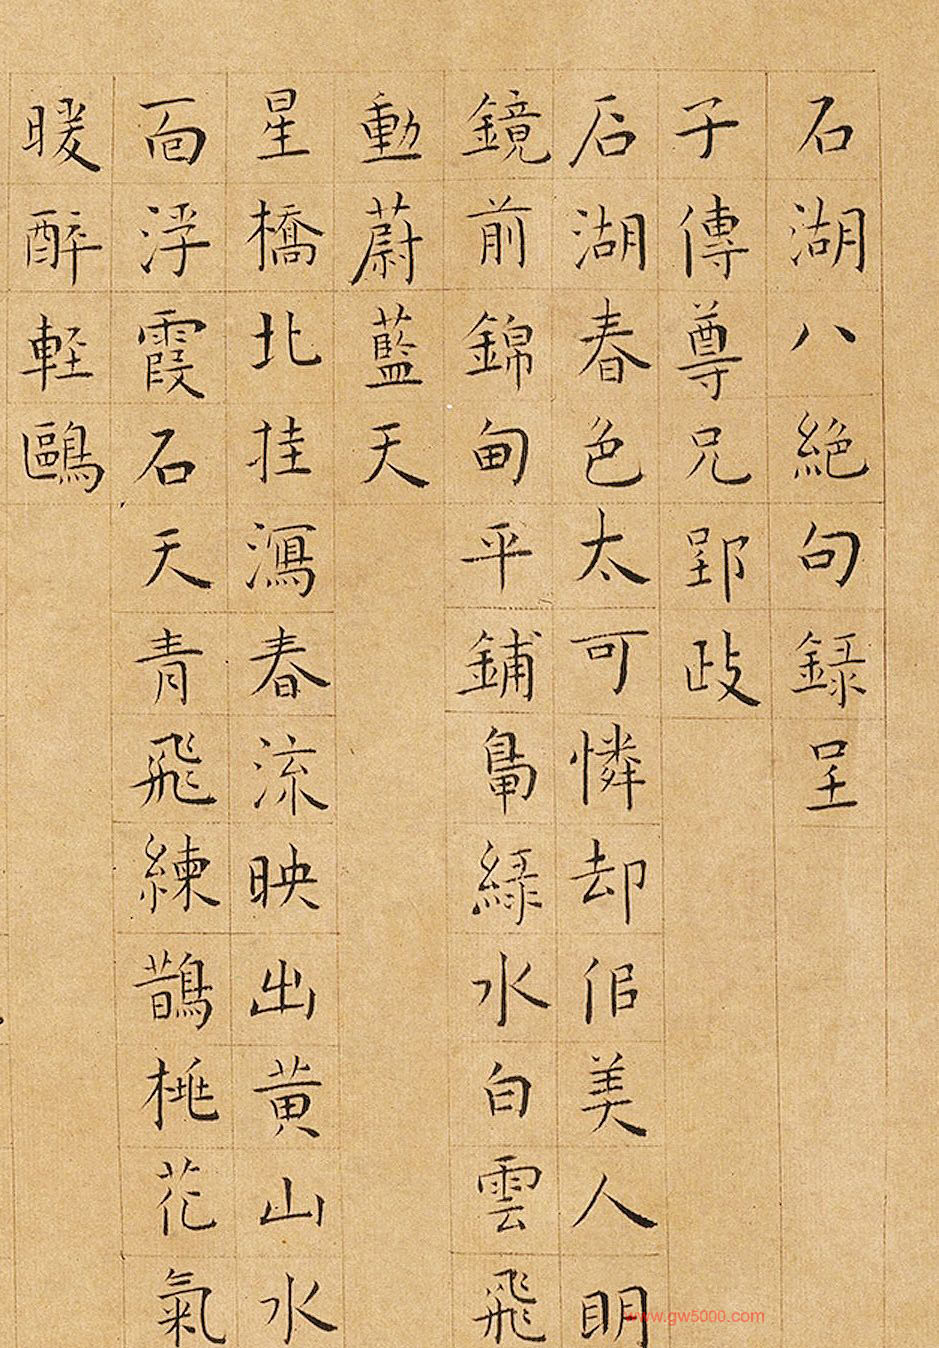 石湖八絶句録呈
子傳尊兄郢政
石湖春色太可憐却佀美人眀
鏡前錦甸平鋪鴨緑水白雲飛
動蔚藍天
星橋北挂瀉春流映出黄山水
面浮霞石天青飛練鵲桃花氣
暖醉輕鷗
www.gw5000.com